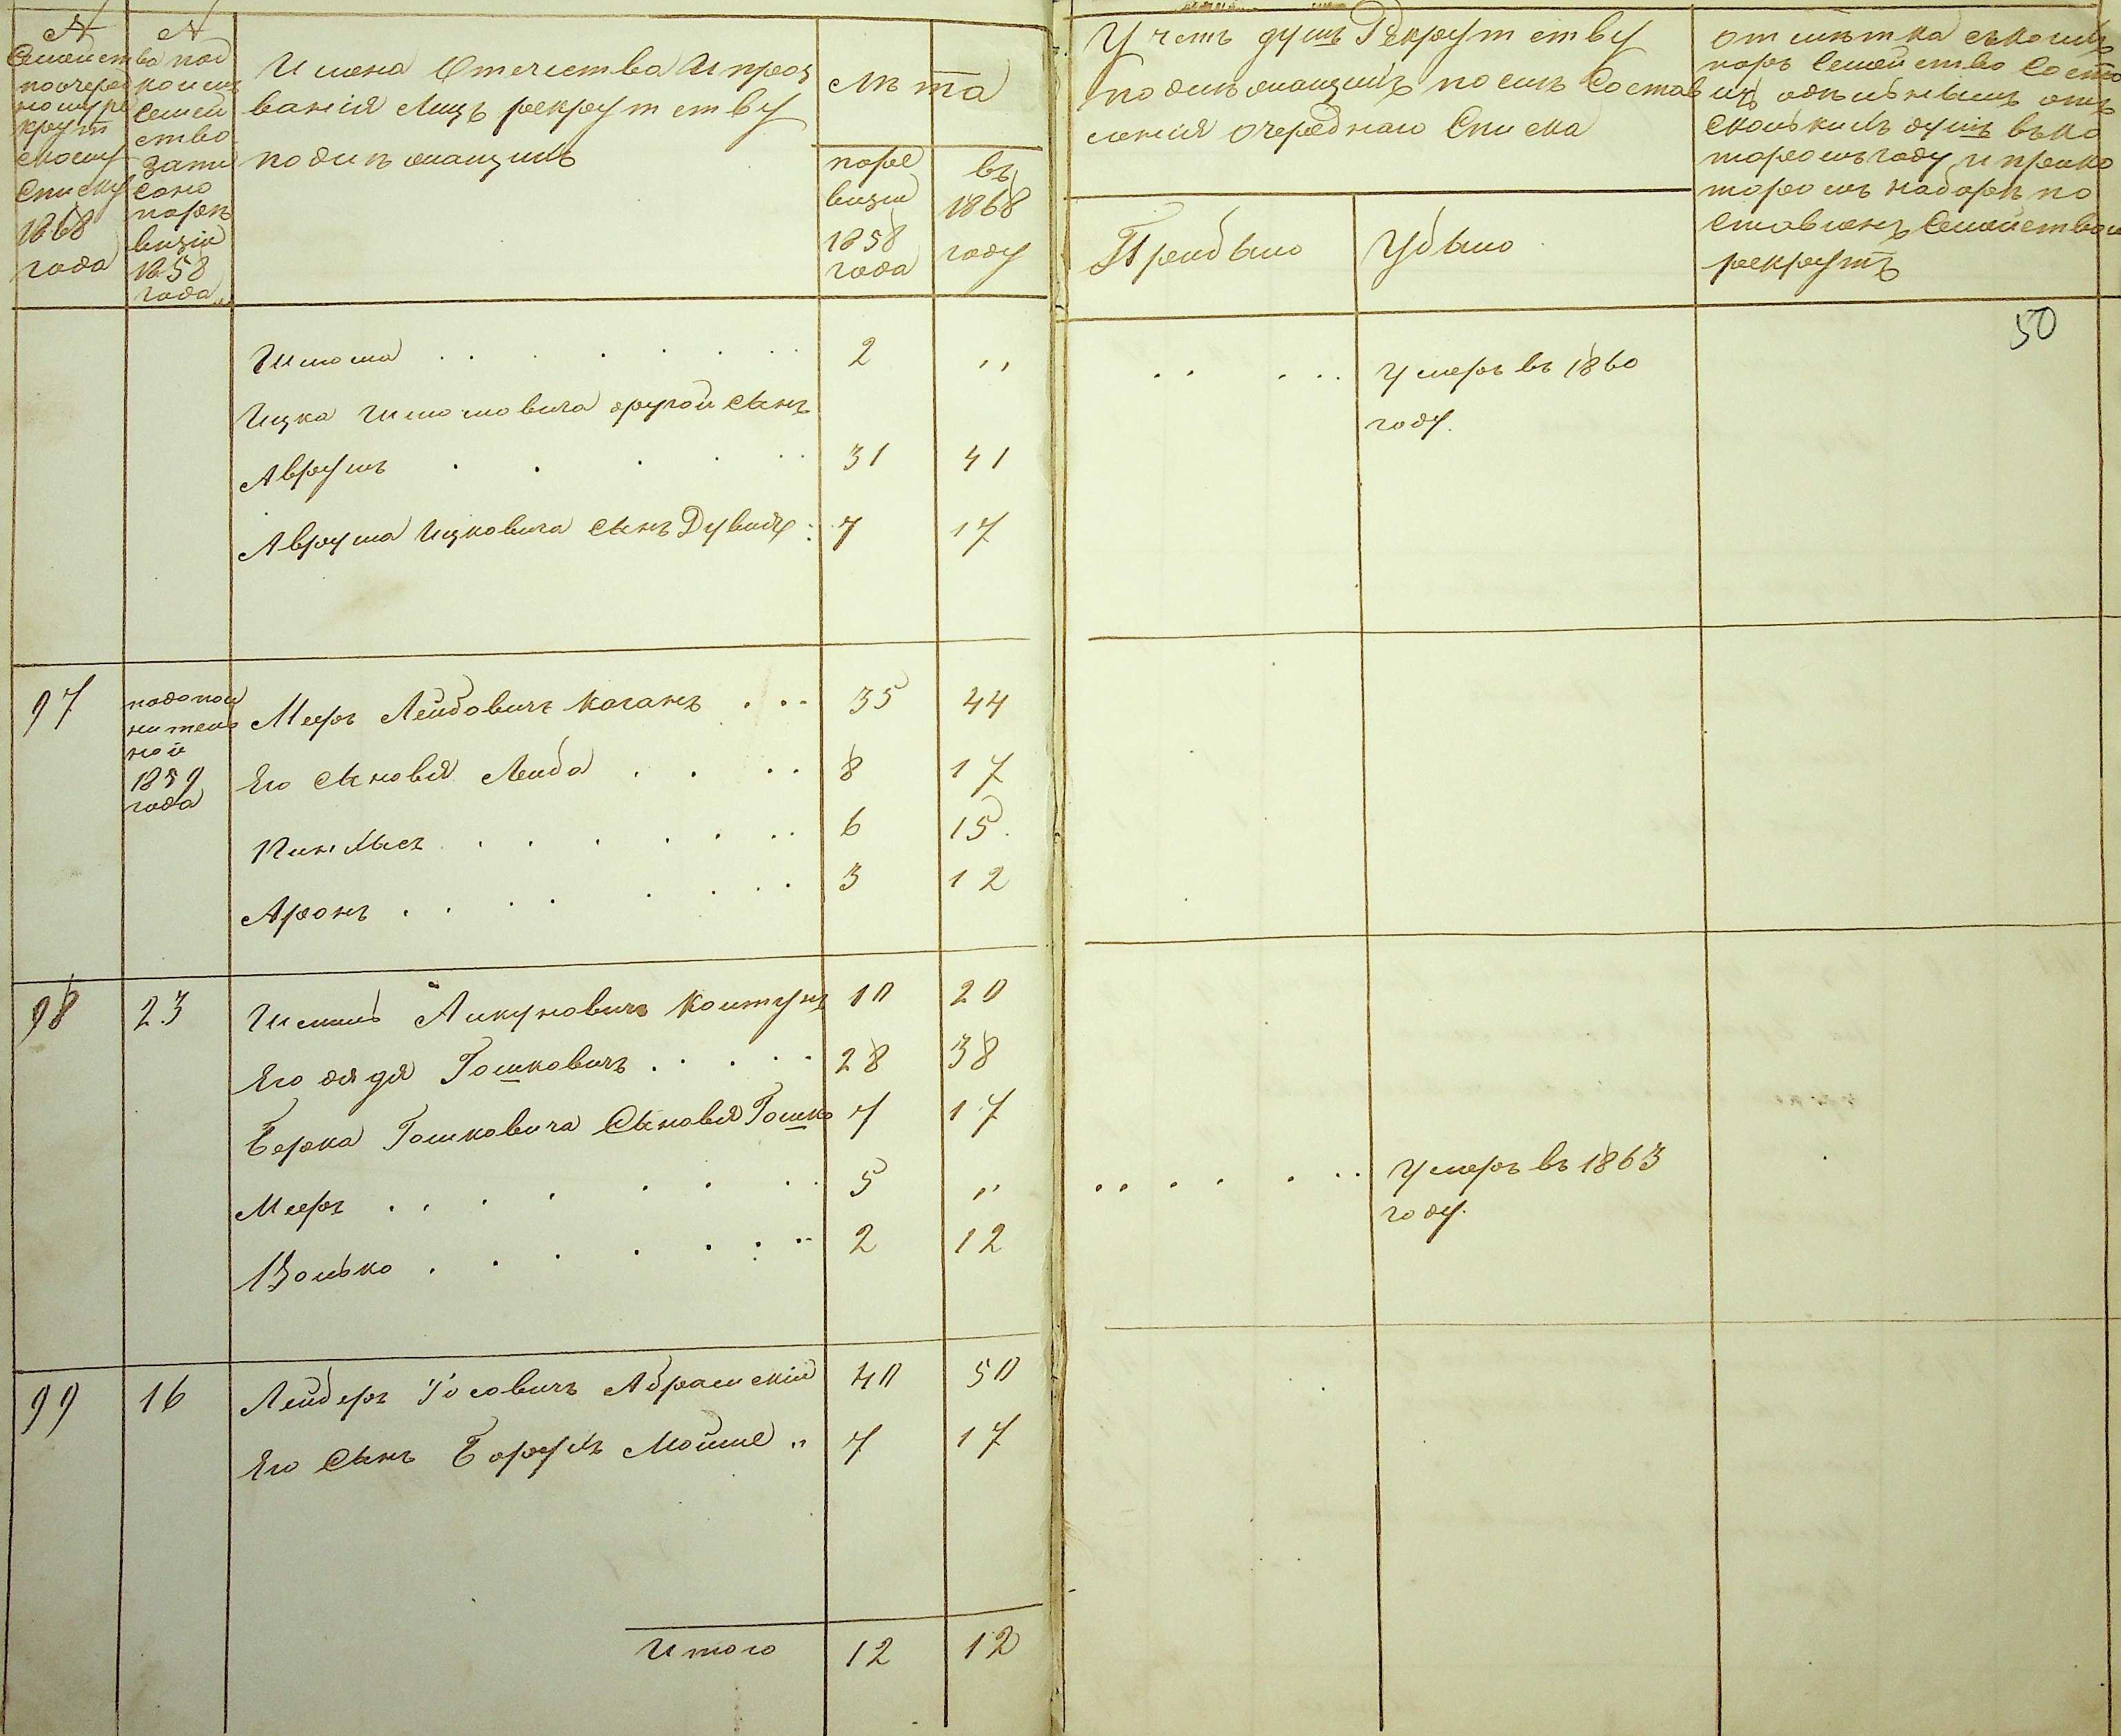 №
Семейст
ва по очеред
ному ре
крут
скому
списку
1868
года
№
под
коимъ
семей
ство
запи
сано
по ре
визіи
1858
года
Имена Отечества И проз
ванія Лицъ рекрутству
подлежащихъ
Лѣта
по ре
визіи
1858
года
въ
1868
году
Учетъ душъ Рекрутству
подлежащихъ после Состав
ленія очереднаго Списка
Прибыло
Убыло
отмѣтка съ коихъ
поръ Семейство состо
итъ
сколькихъ душъ въ ко
торомъ году и при ко
торомъ наборѣ по
ставленъ Семейством
рекрутъ
50
Шлома 2 ,,
Умеръ въ 1860
году.
Ицка Шломовича другой сынъ
Аврумъ 31 41
Аврума Ицковича сынъ Дувидъ 7 17
97
по дополнительной
1859
года
Мееръ Лейбовичъ Коганъ 35 44
Его сыновья Лейба 8 17
Пинхысъ 6 15
Аронъ 3 12
98 23
Шмиль 10 20
Его дядя Гошковичъ 28 38
Берка Гошковича Сыновья Гошко 7 17
Мееръ 5 ,,
Умеръ въ 1863
году.
Волько 2 12
99 16
Лейзеръ Іосовичъ Абрамскій 40 50
Его Сынъ Борухъ Мойше 7 17
Итого 12 12